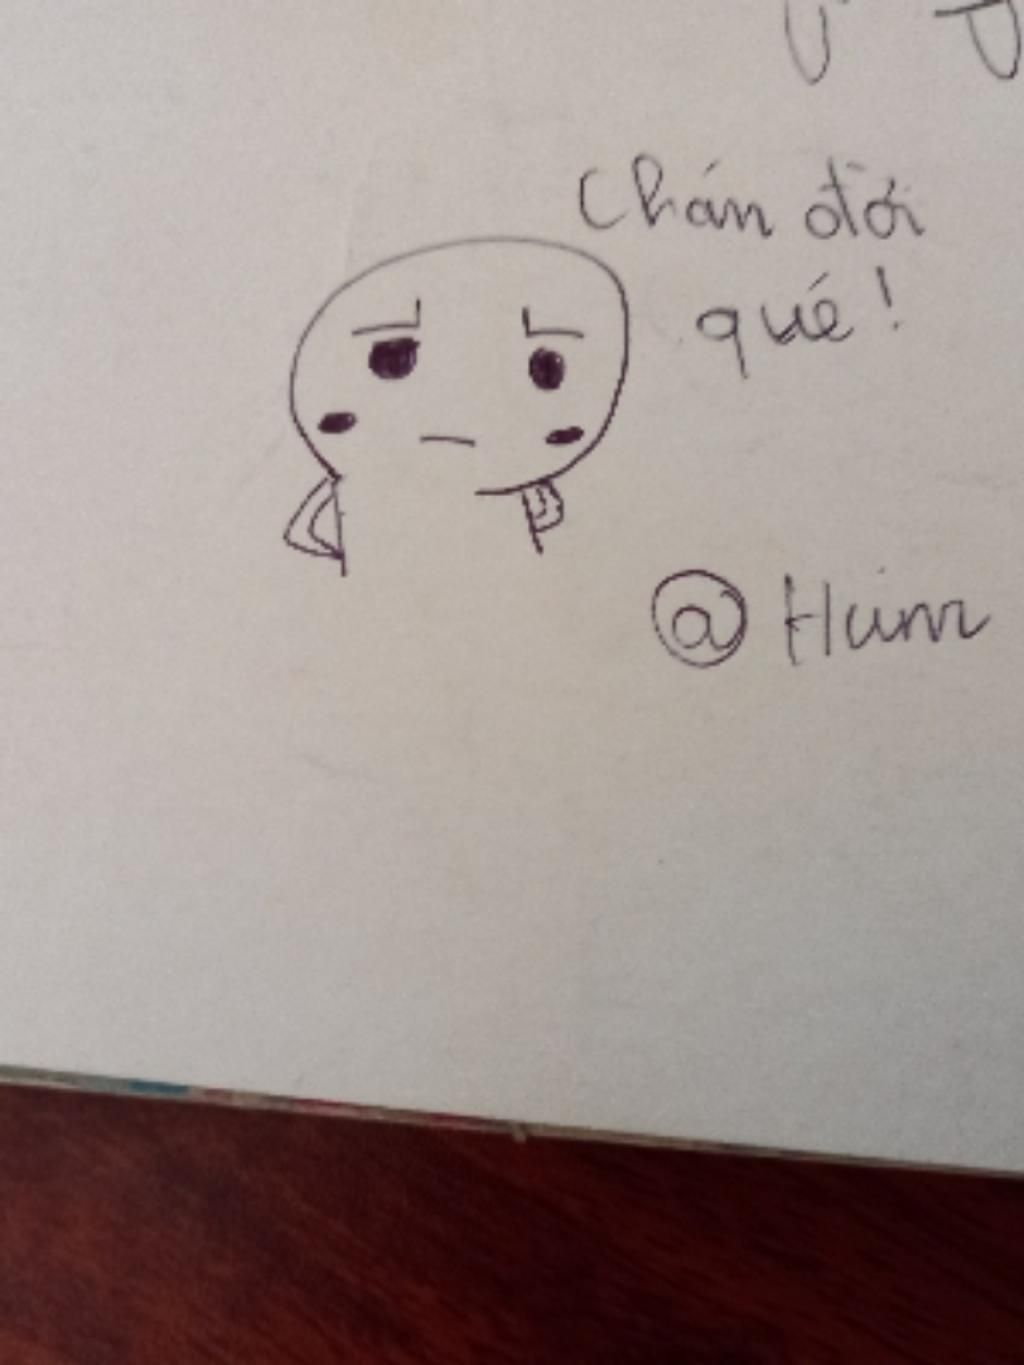 Chán đời
qué!
@ Hum